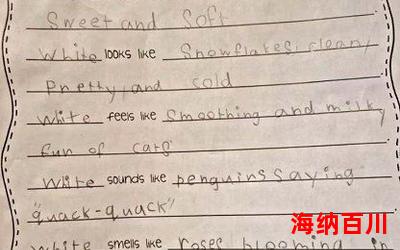 Sweet and Soft
White looks like Snowflakes, clean,
Pretty, and cold
White feels like Smoothing and milky
fun of
White sounds like penguins saying
"quack-quack"
海纳百川
White smells like roses blooming in